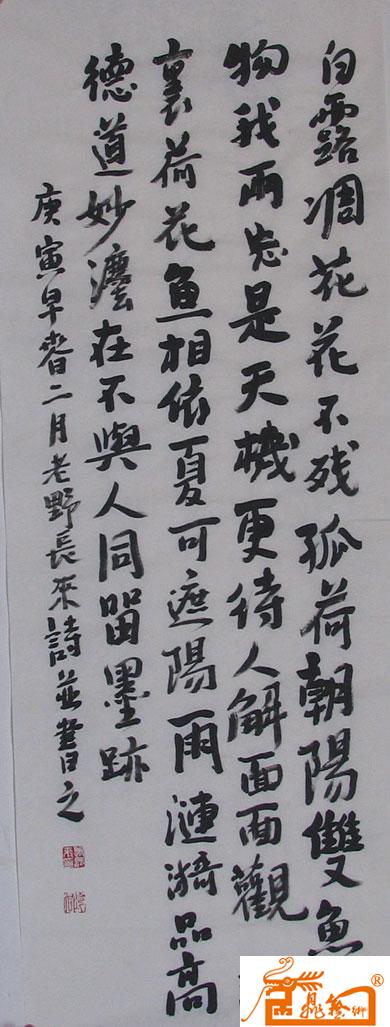 白露凋花花不残孤荷朝陽雙魚
物我兩忘是天機更待人解面面觀
裏荷花魚相依夏可遮陽雨漣漪品高
德道妙瀍在不與人同留墨跡
庚寅早春二月老野長來詩並書之